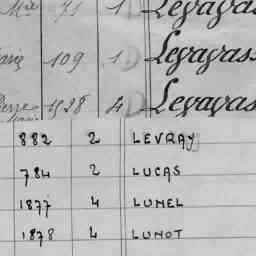 Mie 73 1 Legagas
Marie 109 1 D Legagass
Pierre 1528 4 D Legagas
882 2 LEVRAY
784 2 LUCAS
1877 4 LUMEL
1878 4 LUNOT